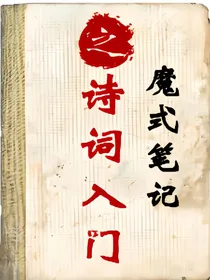 魔式笔记
之
诗词入门